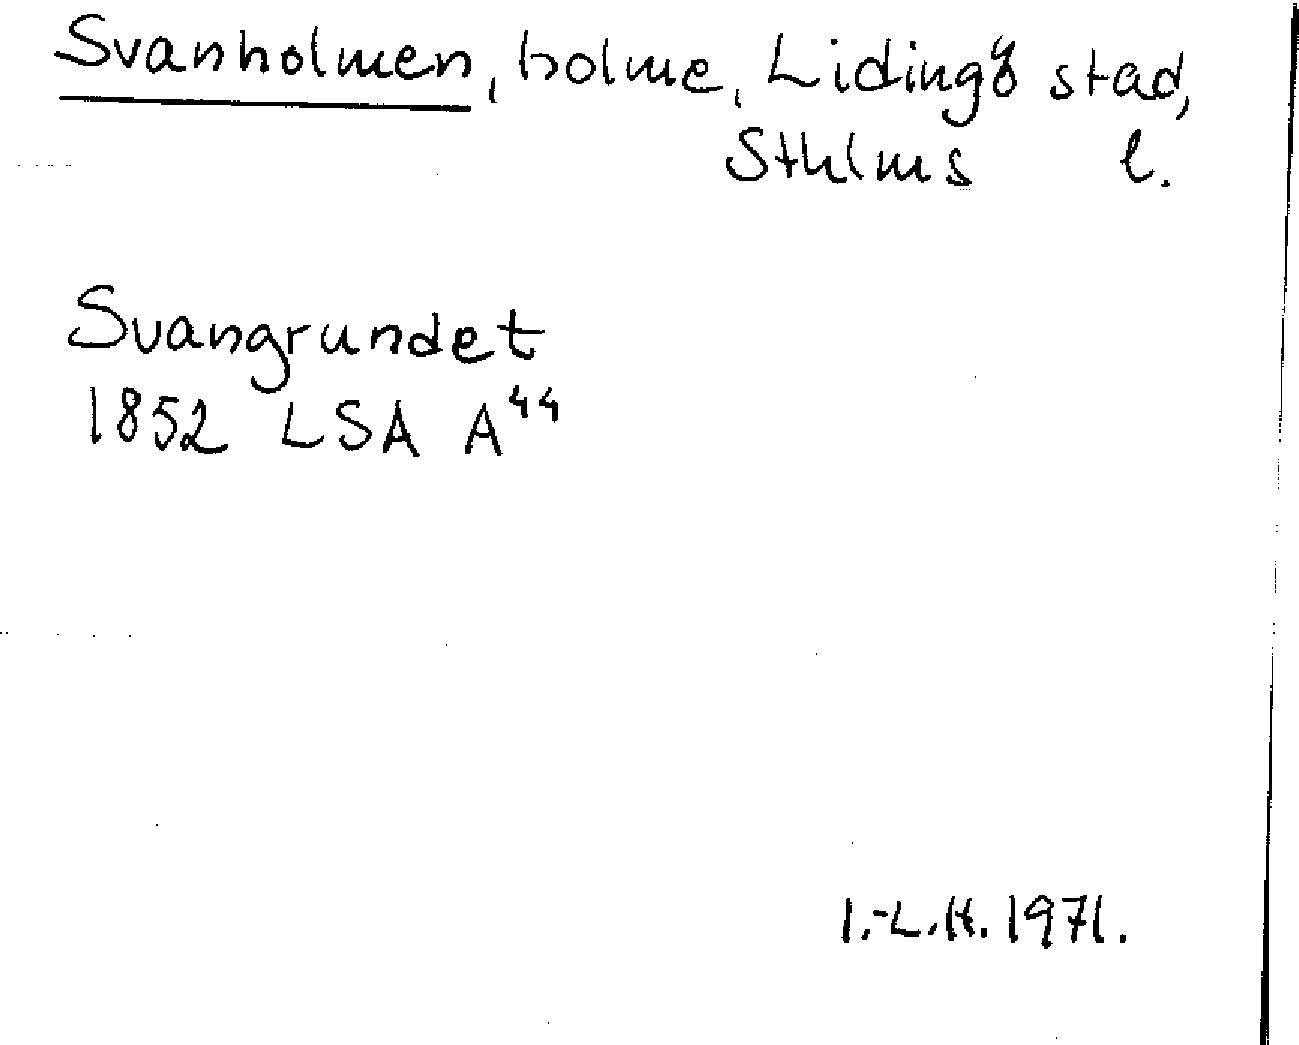 Svanholmen, holme, Lidingö stad,
Sthlms l.
Svangrundet
1852 LSA A⁴⁴
I.-L.H. 1971.